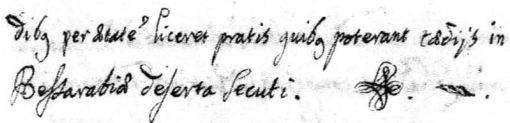 dibq per ætatē liceret pratis quibq poterant tædijs in
Bessarabiæ deserta secuti.